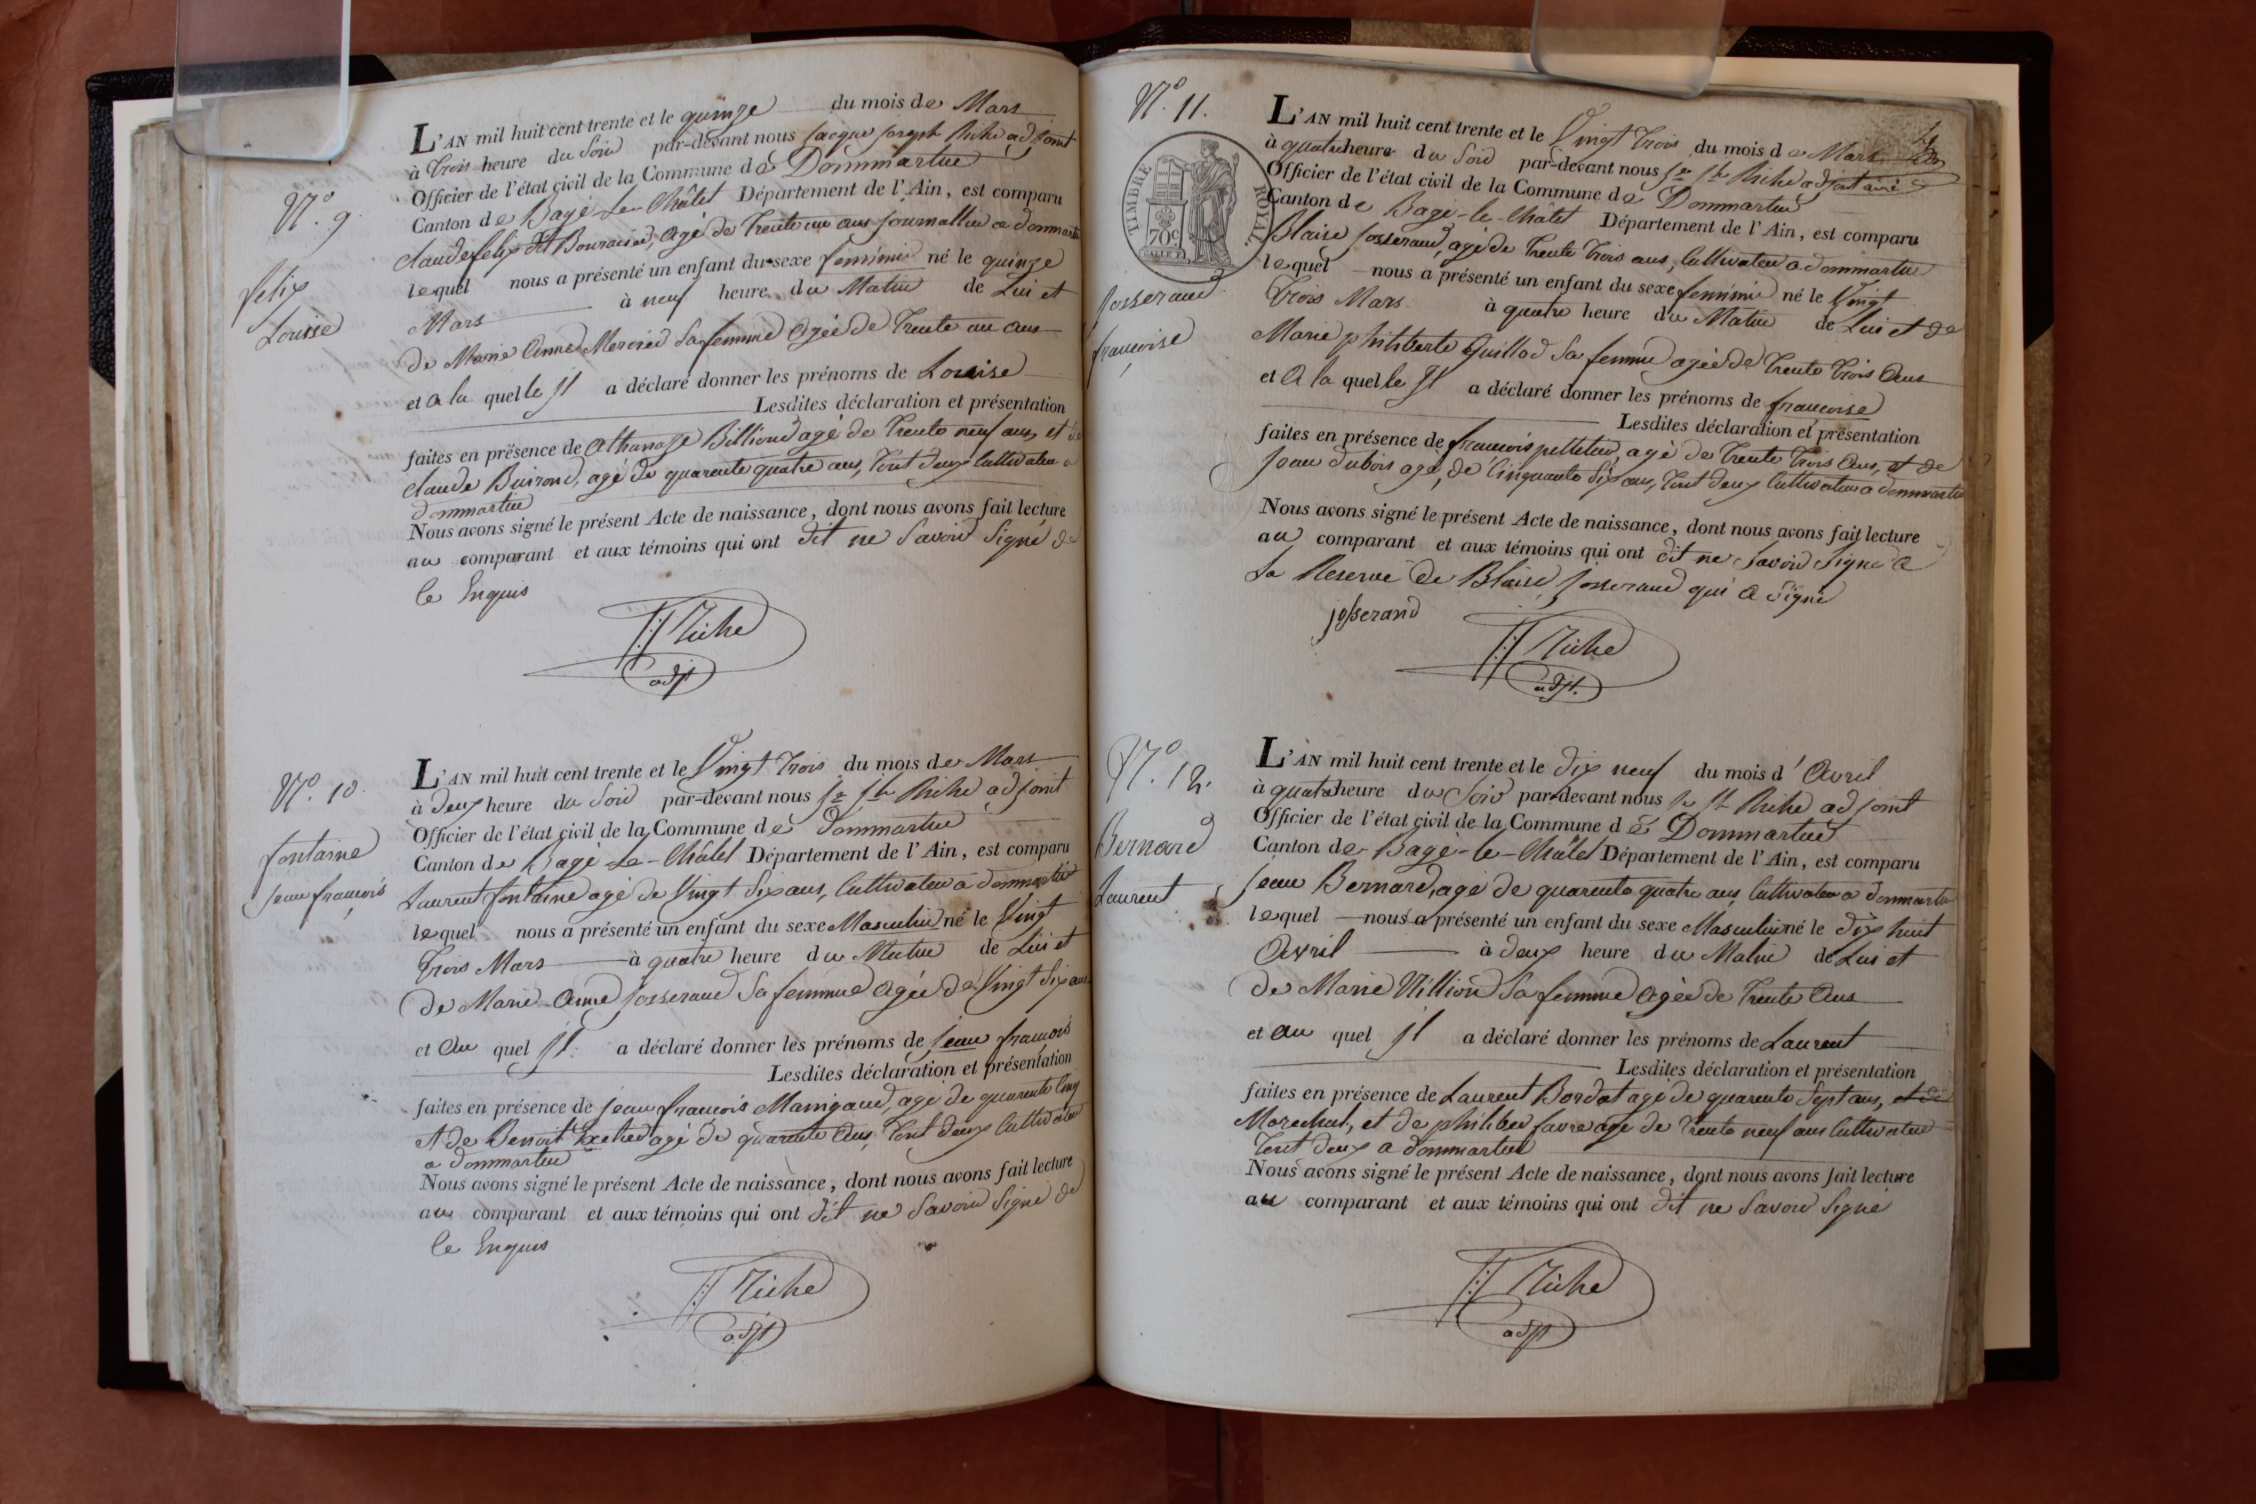 L'AN mil huit cent trente et le quinze du mois de Mars
à trois heure du Soir par-devant nous jacque joseph Riche adjoint
Officier de l'état civil de la Commune de Dommartin
Canton de Bagé-Le-Châtel Département de l'Ain, est comparu
claude felix dit age de trente un ans journallier a dommartin
lequel nous a présenté un enfant du sexe feminin né le quinze
Mars à neuf heure du Matin de Lui et
de Marie Anne Mercier Sa femme agée de trente un ans
et a la quelle Il a déclaré donner les prénoms de Louise
Lesdites déclaration et présentation
faites en présence de athanase Billioud agé de trente neuf ans, et de
claude Buirond, agé de quarente quatre ans, tout deux Cultivateur a
dommartin
Nous avons signé le présent Acte de naissance, dont nous avons fait lecture
au comparant et aux témoins qui ont dit ne Savoir Signé de
ce Enquis
Riche
adjt
N.o 9
felix
Louise
L'AN mil huit cent trente et le Vingt trois du mois de Mars
à deux heure du Soir par-devant nous jq jh Riche adjoint
Officier de l'état civil de la Commune de dommartin
Canton de Bagé-Le-Châtel Département de l'Ain, est comparu
Laurent fontaine agé de Vingt Six ans, Cultivateur a dommartin
lequel nous a présenté un enfant du sexe Masculin né le Vingt
trois Mars à quatre heure du Matin de Lui et
de Marie-Anne josserand Sa femme agée de Vingt Six ans
et au quel Il a déclaré donner les prénoms de jean francois
Lesdites déclaration et présentation
faites en présence de jean francois Manigand, agé de quarente Cinq
et de Benoit agé de quarente ans, tout deux Cultivateur
a dommartin
Nous avons signé le présent Acte de naissance, dont nous avons fait lecture
au comparant et aux témoins qui ont dit ne Savoir Signé de
ce Enquis
Riche
adjt
N.o 10
fontaine
jean francois
L'AN mil huit cent trente et le Vingt trois du mois de Mars
à quatre heure du Soir par-devant nous jq jh Riche adjoint
Officier de l'état civil de la Commune de Dommartin
Canton de Bagé-le-Châtel Département de l'Ain, est comparu
Blaise josserand, agé de trente trois ans, Cultivateur a dommartin
lequel nous a présenté un enfant du sexe feminin né le Vingt
trois Mars à quatre heure du Matin de Lui et de
Marie philiberte Guillod Sa femme agée de trente trois ans
et a la quelle Il a déclaré donner les prénoms de francoise
Lesdites déclaration et présentation
faites en présence de francois pelletier, agé de trente trois ans, et de
jean dubois agé, de Cinquante Six ans, tout deux Cultivateur a dommartin
Nous avons signé le présent Acte de naissance, dont nous avons fait lecture
au comparant et aux témoins qui ont dit ne Savoir Signé a
La Reserve de Blaise josserand qui a Signé
josserand
Riche
adjt.
N.o 11.
TIMBRE ROYAL
70c
josserand
francoise
L'AN mil huit cent trente et le dix neuf du mois d'Avril
à quatre heure du Soir par-devant nous jq jh Riche adjoint
Officier de l'état civil de la Commune de Dommartin
Canton de Bagé-le-Châtel Département de l'Ain, est comparu
jean Bernard, agé de quarente quatre ans, Cultivateur a dommartin
lequel nous a présenté un enfant du sexe Masculin né le dix huit
Avril à deux heure du Matin de Lui et
de Marie Million Sa femme agée de trente ans
et au quel Il a déclaré donner les prénoms de Laurent
Lesdites déclaration et présentation
faites en présence de Laurent Bordat agé de quarente Sept ans, et de
Marechal, et de philiber favre agé de trente neuf ans Cultivateur
tout deux a dommartin
Nous avons signé le présent Acte de naissance, dont nous avons fait lecture
au comparant et aux témoins qui ont dit ne Savoir Signé
Riche
adjt
N.o 12.
Bernard
Laurent